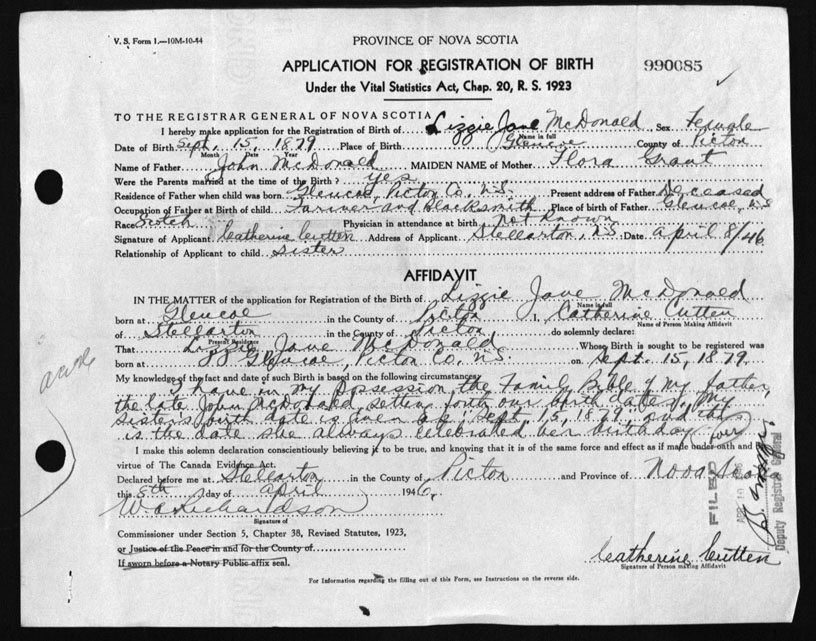 V. S. Form 1.—10M-10-44
PROVINCE OF NOVA SCOTIA
APPLICATION FOR REGISTRATION OF BIRTH
990085
Under the Vital Statistics Act, Chap. 20, R. S. 1923
TO THE REGISTRAR GENERAL OF NOVA SCOTIA
I hereby make application for the Registration of Birth of Lizzie Jane McDonald Sex Female
Name in full
Date of Birth Sept. 15, 1879 Place of Birth Glencoe County of Picton
Month Date Year
Name of Father John McDonald MAIDEN NAME of Mother Flora Grant
Were the Parents married at the time of the Birth? yes
Residence of Father when child was born Glencoe, Picton Co, N.S. Present address of Father Deceased
Occupation of Father at Birth of child Farmer and Blacksmith Place of birth of Father Glencoe, N.S
Race Scotch Physician in attendance at birth Not Known
Signature of Applicant Catherine Cutten Address of Applicant Stellarton, N.S. Date April 8/46
Relationship of Applicant to child Sister
AFFIDAVIT
IN THE MATTER of the application for Registration of the Birth of Lizzie Jane McDonald
Name in full
born at Glencoe in the County of Picton I, Catherine Cutten
Name of Person Making Affidavit
of Stellarton in the County of Picton do solemnly declare:
Present Residence
That Lizzie Jane McDonald Whose Birth is sought to be registered was
born at Glencoe, Picton Co, N.S. on Sept. 15, 1879
My knowledge of the fact and date of such Birth is based on the following circumstances
I have in my possession the Family Bible of my father,
the late John McDonald, setting forth our birth dates. My
sisters birth date is given as: Sept. 15, 1879, and this
is the date she always celebrated her birthday
I make this solemn declaration conscientiously believing it to be true, and knowing that it is of the same force and effect as if made under oath and by
virtue of The Canada Evidence Act.
Declared before me at Stellarton in the County of Picton and Province of Nova Scotia
this 8th day of April 1946.
Signature of
Commissioner under Section 5, Chapter 38, Revised Statutes, 1923,
or Justice of the Peace in and for the County of
If sworn before a Notary Public affix seal.
Catherine Cutten
Signature of Person making Affidavit
For Information regarding the filling out of this Form, see Instructions on the reverse side.
FILED
APR 10
Deputy Registrar General